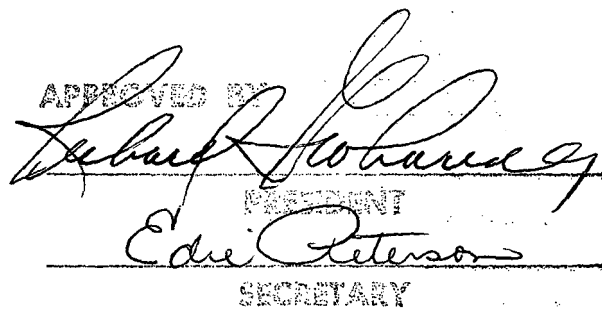 APPROVED BY
Richard
PRESIDENT
Edie Peterson
SECRETARY